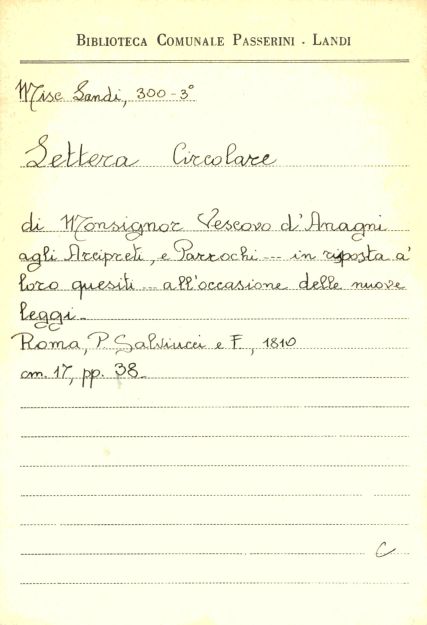 BIBLIOTECA COMUNALE PASSERINI - LANDI
Misc Landi, 300-3°
Lettera Circolare
di Monsignor Vescovo d'Anagni
agli Arcipreti, e Parrochi --- in risposta a'
loro quesiti --- all'occasione delle nuove
leggi.
Roma, P. Salviucci e F., 1810
cm. 17, pp. 38.
C